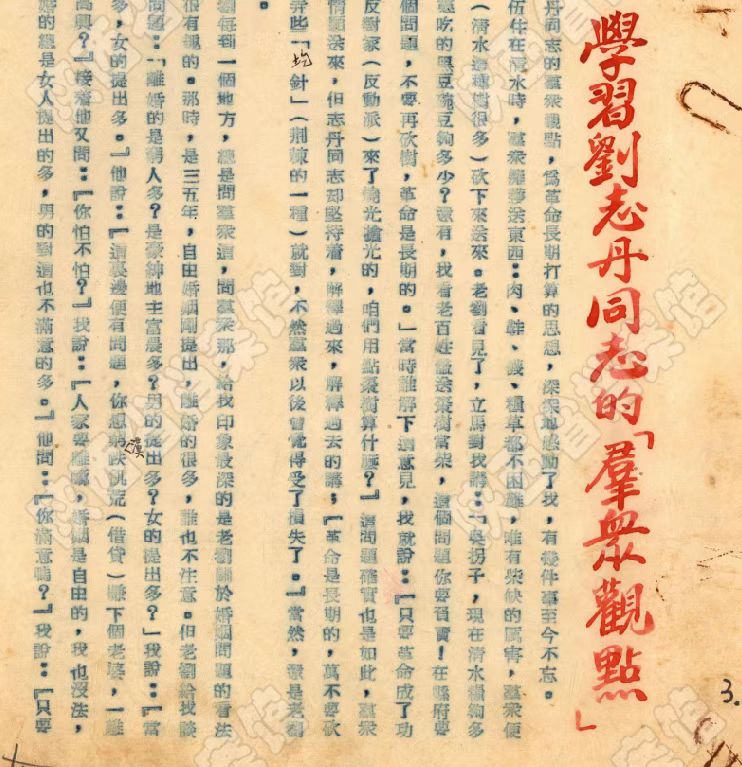 學習劉志丹同志的「羣衆觀點」
丹同志的羣衆觀點，爲革命長期打算的思想，深深地感動了我，有幾件事至今不忘。
伍住在清水時，羣衆擁護送東西：肉、鞋、襪、糧草都不困難，唯有柴缺的厲害，羣衆便
（清水這種樹很多）砍下來送來。老劉看見了，立馬對我講：「吳拐子，現在清水糧夠多
吃的黑豆豌豆夠多少？還有，我看老百姓盡送棗樹當柴，這個問題你要負責！在縣府要
個問題，不要再砍樹，革命是長期的。」當時誰解下這意見，我就說：：『只要革命成了功
反對家（反動派）來了燒光搶光的，咱們用點棗樹算什麼？』這問題確實也是如此，羣衆
情願送來，但志丹同志却堅持着，解釋過來，解釋過去的講；『革命是長期的，萬不要砍
弄些「圪針」（荆棘的一種）就對，不然羣衆以後會覺得受了損失了。』當然，還是老劉
劉每到一個地方，總是問羣衆這，問羣衆那，給我印象最深的是老劉關於婚姻問題的看法
很有趣的。那時，是三五年，自由婚姻剛提出，離婚的很多，誰也不注意。但老劉給我談
問題：：「離婚的是窮人多？是豪紳地主富農多？男的提出多？女的提出多？」我說：：『當
多，女的提出多。』他說：：『這裏邊便有問題，你想窮漢饑荒（借貸）賺下個老婆，一離
高興？』接着他又問：：『你怕不怕？』我說：：『人家要離嘛，婚姻是自由的，我也沒法，
婚的總是女人提出的多，男的對這也不滿意的多。』他問：：『你滿意嗎？』我說：：『只要
3.
陝西省档案馆